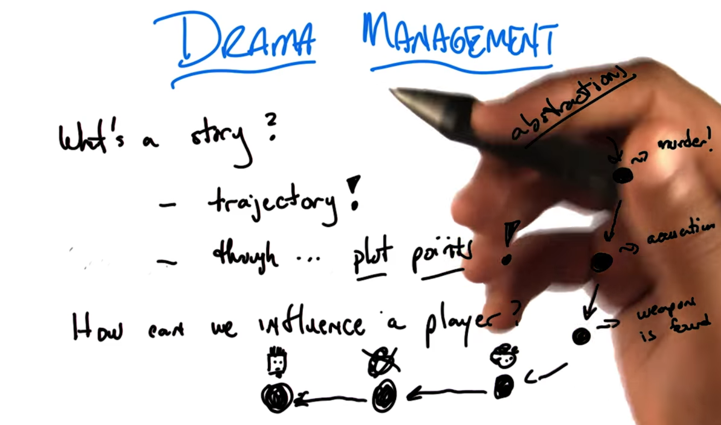 DRAMA MANAGEMENT
What's a story?
- trajectory!
- through ... plot points!
How can we influence a player?
abstractions
murder!
accusation
weapon
is found